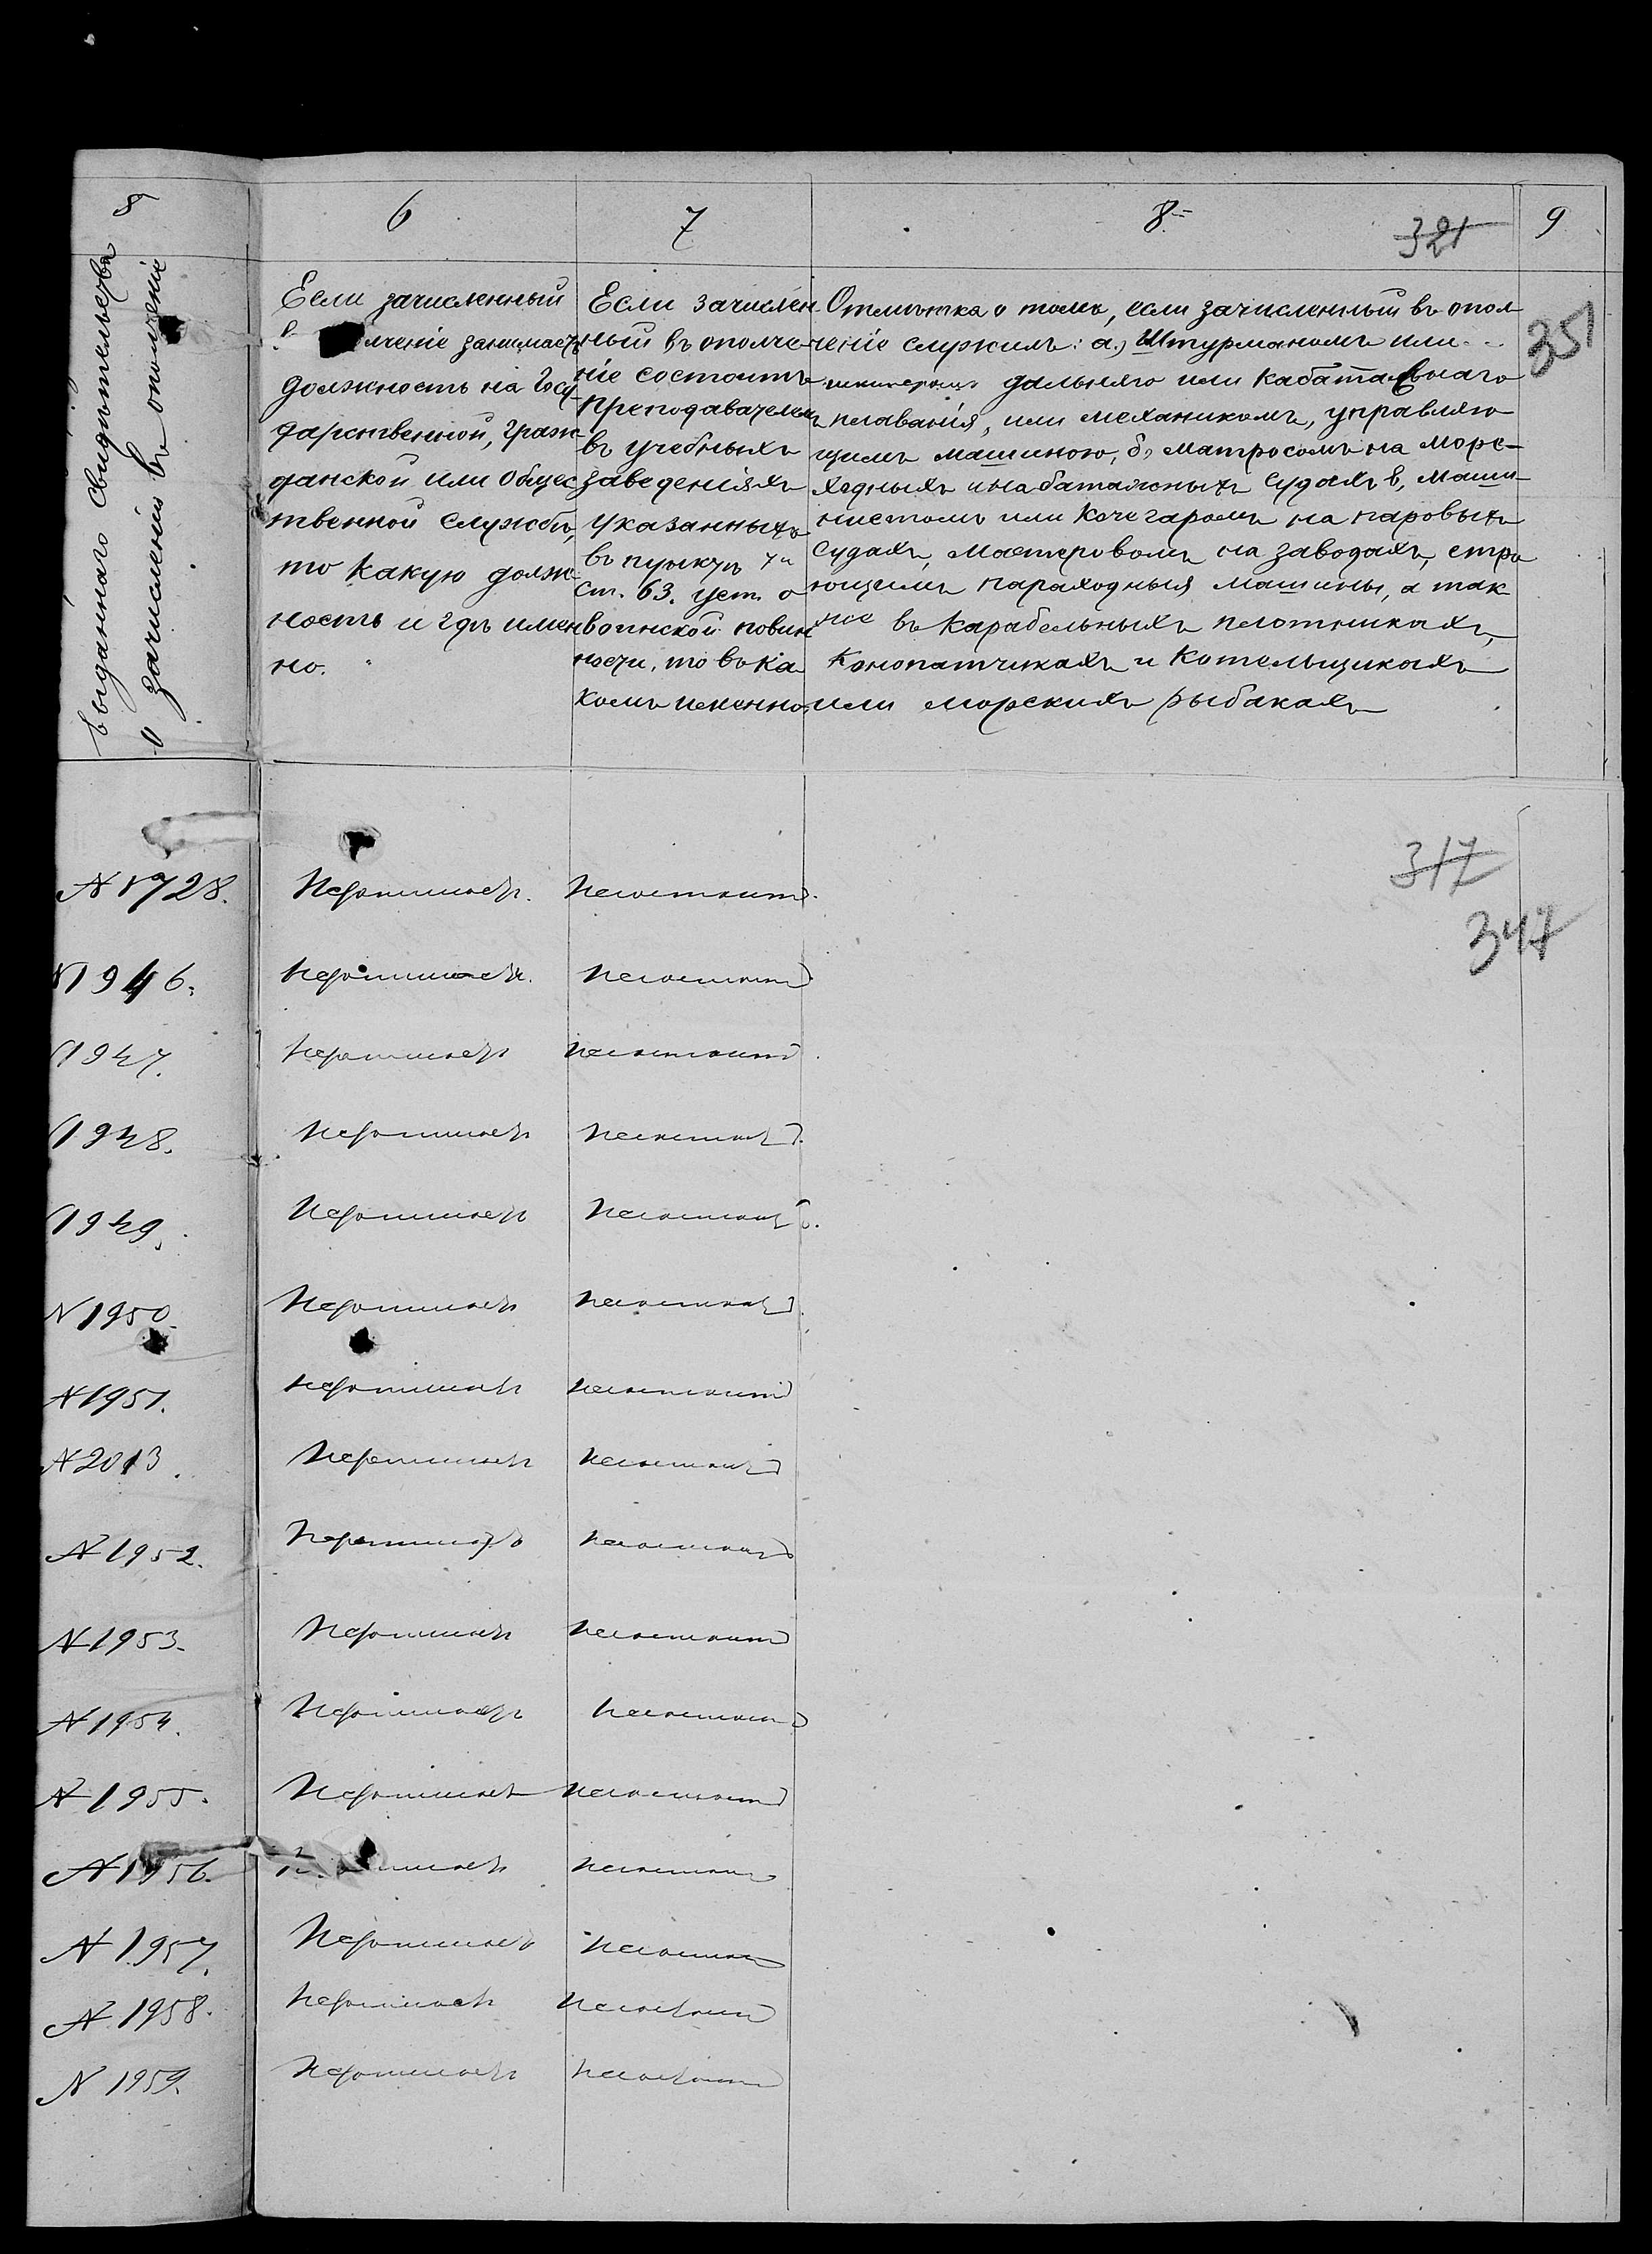 8
6
7
8
9
321
351
выданнаго свидѣтельства
о зачисленіи въ ополченіе
Если зачисленный
в лченіе занимаетъ
должность на Госу-
дарственной, граж-
данской или общес
твенной службѣ,
то какую долж-
ность и гдѣ имен
но.
Если зачислен-
ный въ ополче-
ніе состоитъ
преподавателемъ
въ учебныхъ
заведеніяхъ
указанныхъ
въ пунктѣ 7м
ст. 63. уст. о
воинской повин
ности, то въ ка
комъ именно.
Отмѣтка о томъ, если зачисленный въ опол-
ченіе служилъ: а.) Штурманомъ или
шкиперомъ дальняго или кабатажнаго
плаванія, или механикомъ, управляю
щимъ машиною, б, матросомъ на море-
ходныхъ и на батажныхъ судахъ в, маши-
нистомъ или кочегаромъ на паровыхъ
судахъ, мастеровомъ на заводахъ, стро
ющимъ параходныя машины, а так
же въ карабельныхъ плотникахъ,
конопатчикахъ и котельщикахъ
или морскихъ рыбакахъ
317
347
N 1728. Незанимаетъ. Несостоитъ.
N 1946. Незанимаетъ. Несостоитъ
1947. Незанимаетъ Несостоитъ.
1948. Незанимаетъ Несостоитъ.
1949. Незанимаетъ Несостоитъ.
N 1950. Незанимаетъ Несостоитъ.
N 1951. Незанимаетъ Несостоитъ
N 2013. Незанимаетъ Несостоитъ
N 1952. Незанимаетъ Несостоитъ
N 1953. Незанимаетъ Несостоитъ
N 1954. Незанимаетъ Несостоитъ
N 1955. Незанимаетъ Несостоитъ
N 1956. Незанимаетъ Несостоитъ
N 1957. Незанимаетъ Несостоитъ
N 1958. Незанимаетъ Несостоитъ
N 1959. Незанимаетъ Несостоитъ